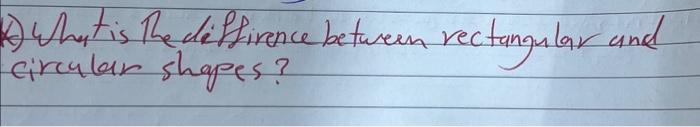 K) What is The diffirence between rectangular and
circular shapes?